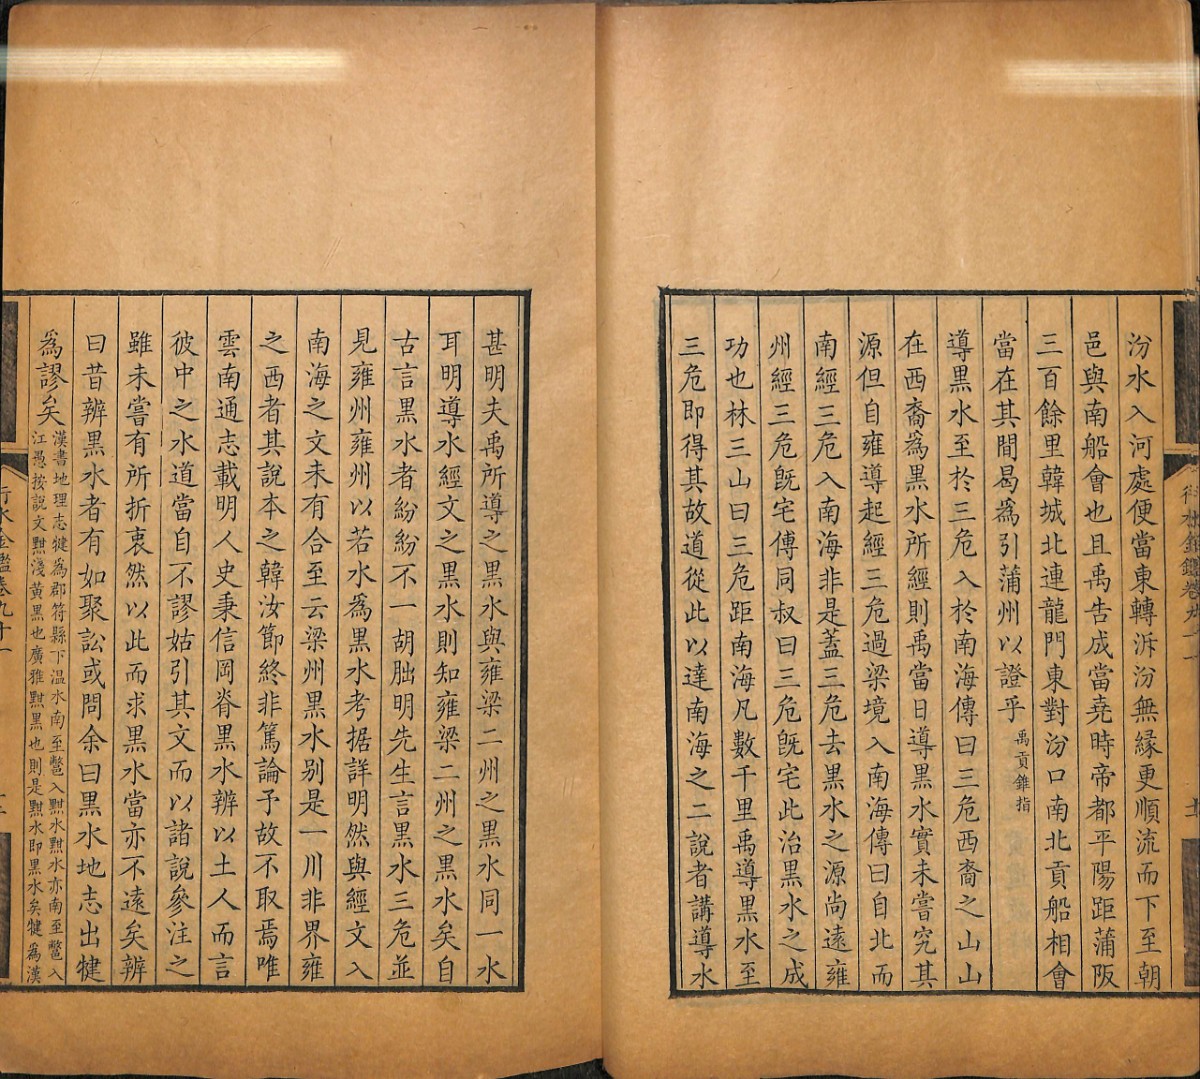 汾水入河處便當東轉泝汾無縁更順流而下至朝
邑與南船會也且禹告成當堯時帝都平陽距蒲阪
三百餘里韓城北連龍門東對汾口南北貢船相會
當在其間曷為引蒲州以證乎禹貢錐指
導黑水至於三危入於南海傳曰三危西裔之山山
在西裔為黑水所經則禹當日導黑水實未嘗究其
源但自雍導起經三危過梁境入南海傳曰自北而
南經三危入南海非是蓋三危去黑水之源尚遠雍
州經三危旣宅傳同叔曰三危旣宅此治黑水之成
功也林三山曰三危距南海凡數千里禹導黑水至
三危即得其故道從此以達南海之二說者講導水
甚明夫禹所導之黑水與雍梁二州之黑水同一水
耳明導水經文之黑水則知雍梁二州之黑水矣自
古言黑水者紛紛不一胡朏明先生言黑水三危並
見雍州雍州以若水為黑水考据詳明然與經文入
南海之文未有合至云梁州黑水别是一川非界雍
之西者其說本之韓汝節終非篤論予故不取焉唯
雲南通志載明人史秉信岡脊黑水辨以土人而言
彼中之水道當自不謬姑引其文而以諸說參注之
雖未嘗有所折衷然以此而求黑水當亦不遠矣辨
曰昔辨黑水者有如聚訟或問余曰黑水地志出犍
為謬矣漢書地理志犍為郡符縣下温水南至鄨入黚水黚水亦南至鄨入
江愚按說文黚淺黃黑也廣雅黚黑也則是黚水即黑水矣犍為漢
行水金鑑卷九十一